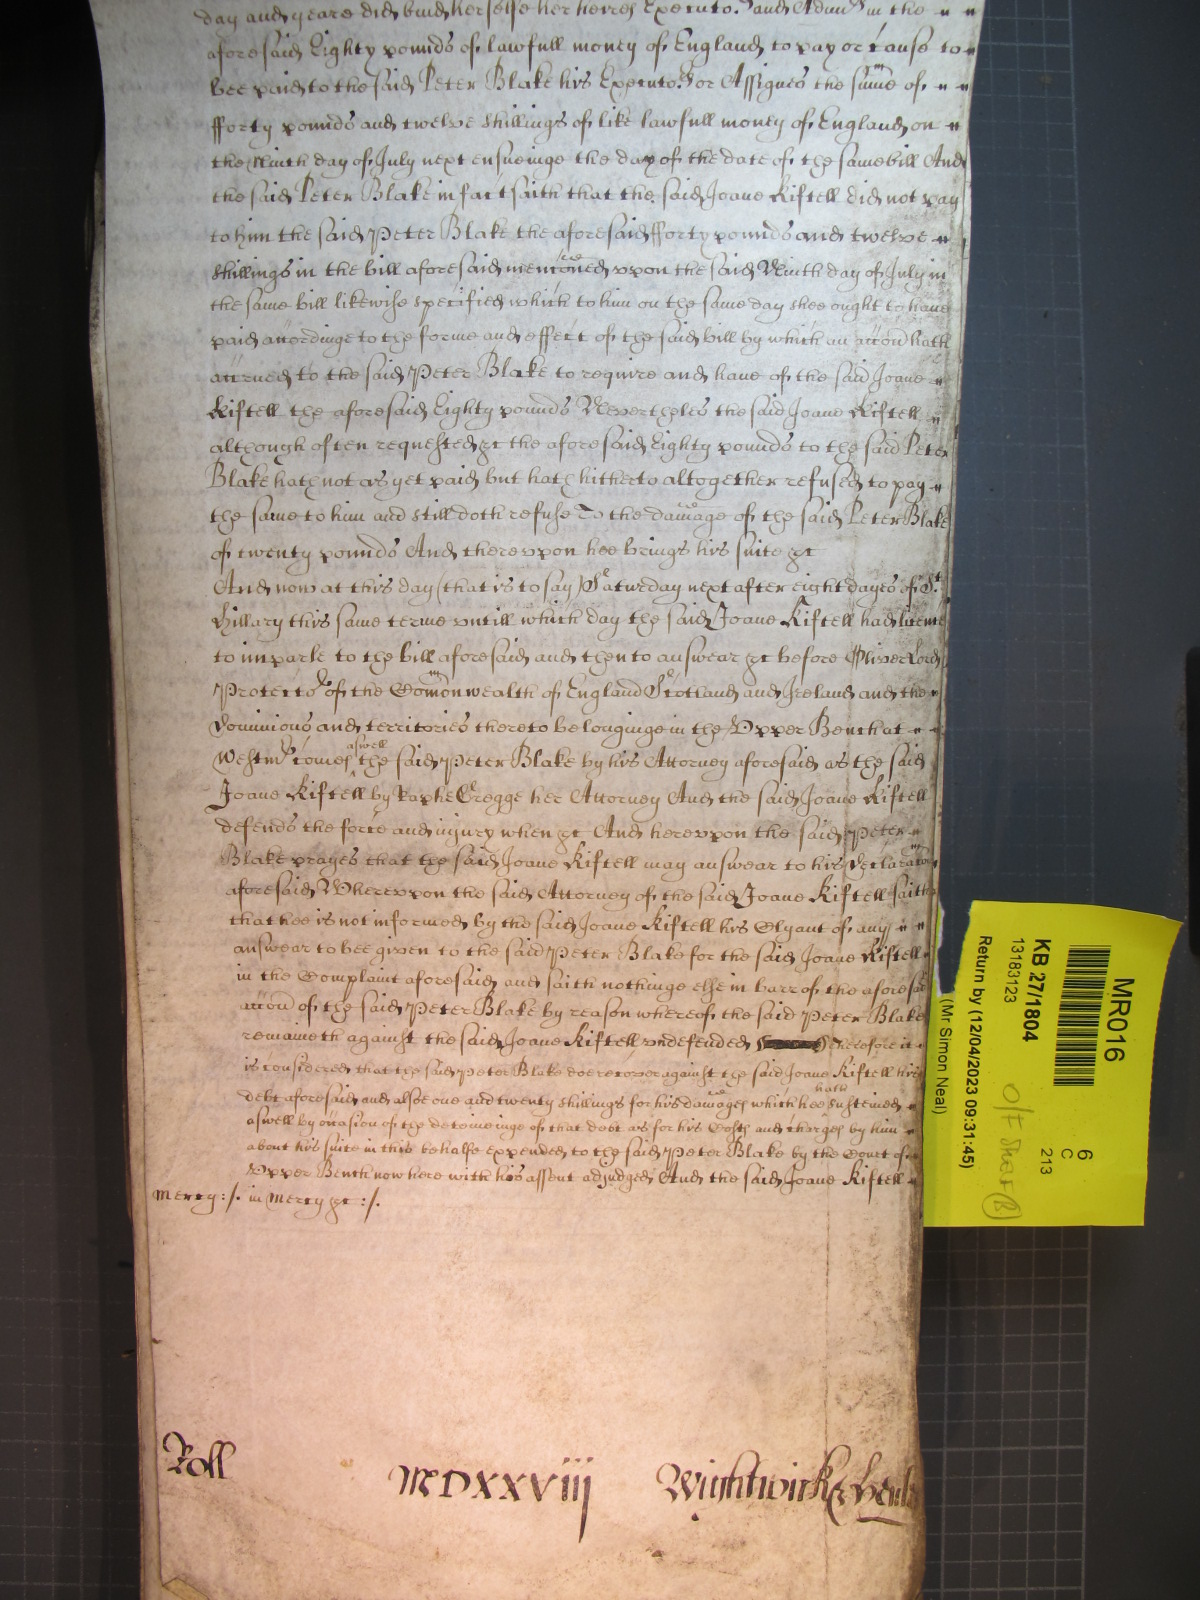 day and yeare did bind herselfe her heires Executo.rs and Admin.rs in the
aforesaid Eighty pounds of lawfull money of England to pay or cause to
bee paid to the said Peter Blake his Executo.rs or Assignes the sume of
fforty pounds and twelve shillings of like lawfull money of England on
the Ninth day of July next ensueinge the day of the date of the same bill And
the said Peter Blake in fact saith that the said Joane Kiftell did not pay
to him the said Peter Blake the aforesaid fforty pounds and twelve
shillings in the bill aforesaid menc̃oned vpon the said Ninth day of July in
the same bill likewise specified which to him on the same day shee ought to haue
paid accordinge to the forme and effect of the said bill by which an acc̃on hath
accrued to the said Peter Blake to require and haue of the said Joane
Kiftell the aforesaid Eighty pounds Neverthles the said Joane Kiftell
although often requested &c the aforesaid Eighty pounds to the said Peter
Blake hath not as yet paid but hath hitherto altogether refused to pay
the same to him and still doth refuse To the damage of the said Peter Blake
of twenty pounds And therevpon hee brings his suite &c
And now at this day (that is to say) Saturday next after eight dayes of St.
Hillary this same terme vntill which day the said Joane Kiftell had licence
to imparle to the bill aforesaid and then to answear &c before Oliver Lord
Protector of the Com̃onwealth of England Scotland and Ireland and the
Dominions and territories thereto belonginge in the Vpper Bench at
Westmr comes aswell the said Peter Blake by his Attorney aforesaid as the said
Joane Kiftell by Raphe Gregge her Attorney And the said Joane Kiftell
defends the force and injury when &c And herevpon the said Peter
Blake prayes that the said Joane Kiftell may answear to his Declarac̃on
aforesaid Wherevpon the said Attorney of the said Joane Kiftell saith
that hee is not informed by the said Joane Kiftell his Clyant of any
answear to bee given to the said Peter Blake for the said Joane Kiftell
in the Complaint aforesaid and saith nothinge else in barr of the aforesaid
acc̃on of the said Peter Blake by reason whereof the said Peter Blake
remaineth against the said Joane Kiftell vndefended therefore it
is considered that the said Peter Blake doe recover against the said Joane Kiftell his
debt aforesaid and alsoe one and twenty shillings for his damages which hee hath susteined
aswell by occasion of the deteineinge of that debt as for his Costs and charges by him
about his suite in this behalfe expended to the said Peter Blake by the Court of
Vpper Bench now here with his assent adjudged And the said Joane Kiftell
mercy :/. in mercy &c :/.
Roll MDXXVIII Wightwick &
MR016
KB 27/1804
13183123
Return by (12/04/2023 09:31:45)
(Mr Simon Neal)
6
C
213